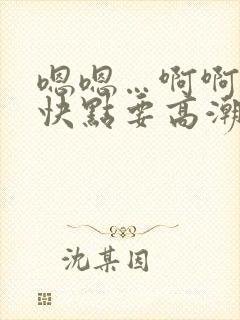 嗯嗯…啊啊
快點要高潮
沈某因